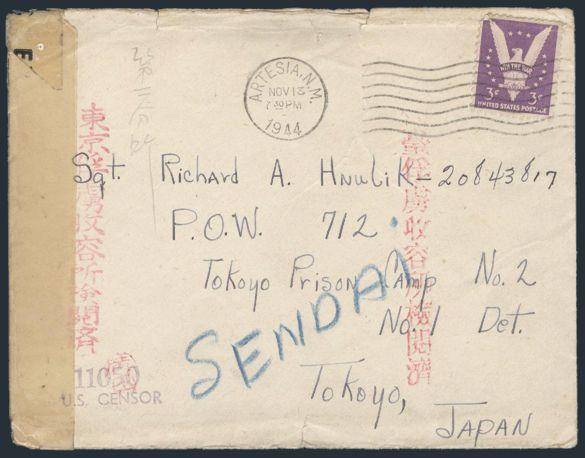 E
ARTESIA, N.M.
NOV 13
7 30 PM
1944
WIN THE WAR
3¢ 3¢
UNITED STATES POSTAGE
東京俘虜収容所検閲済
臺俘虜收容所檢閲濟
Sgt. Richard A. Hnulik - 20843817
P.O.W. 712.
Tokoyo Prison Camp No. 2
No. 1 Det.
SENDAI
Tokoyo,
JAPAN
11050
U.S. CENSOR